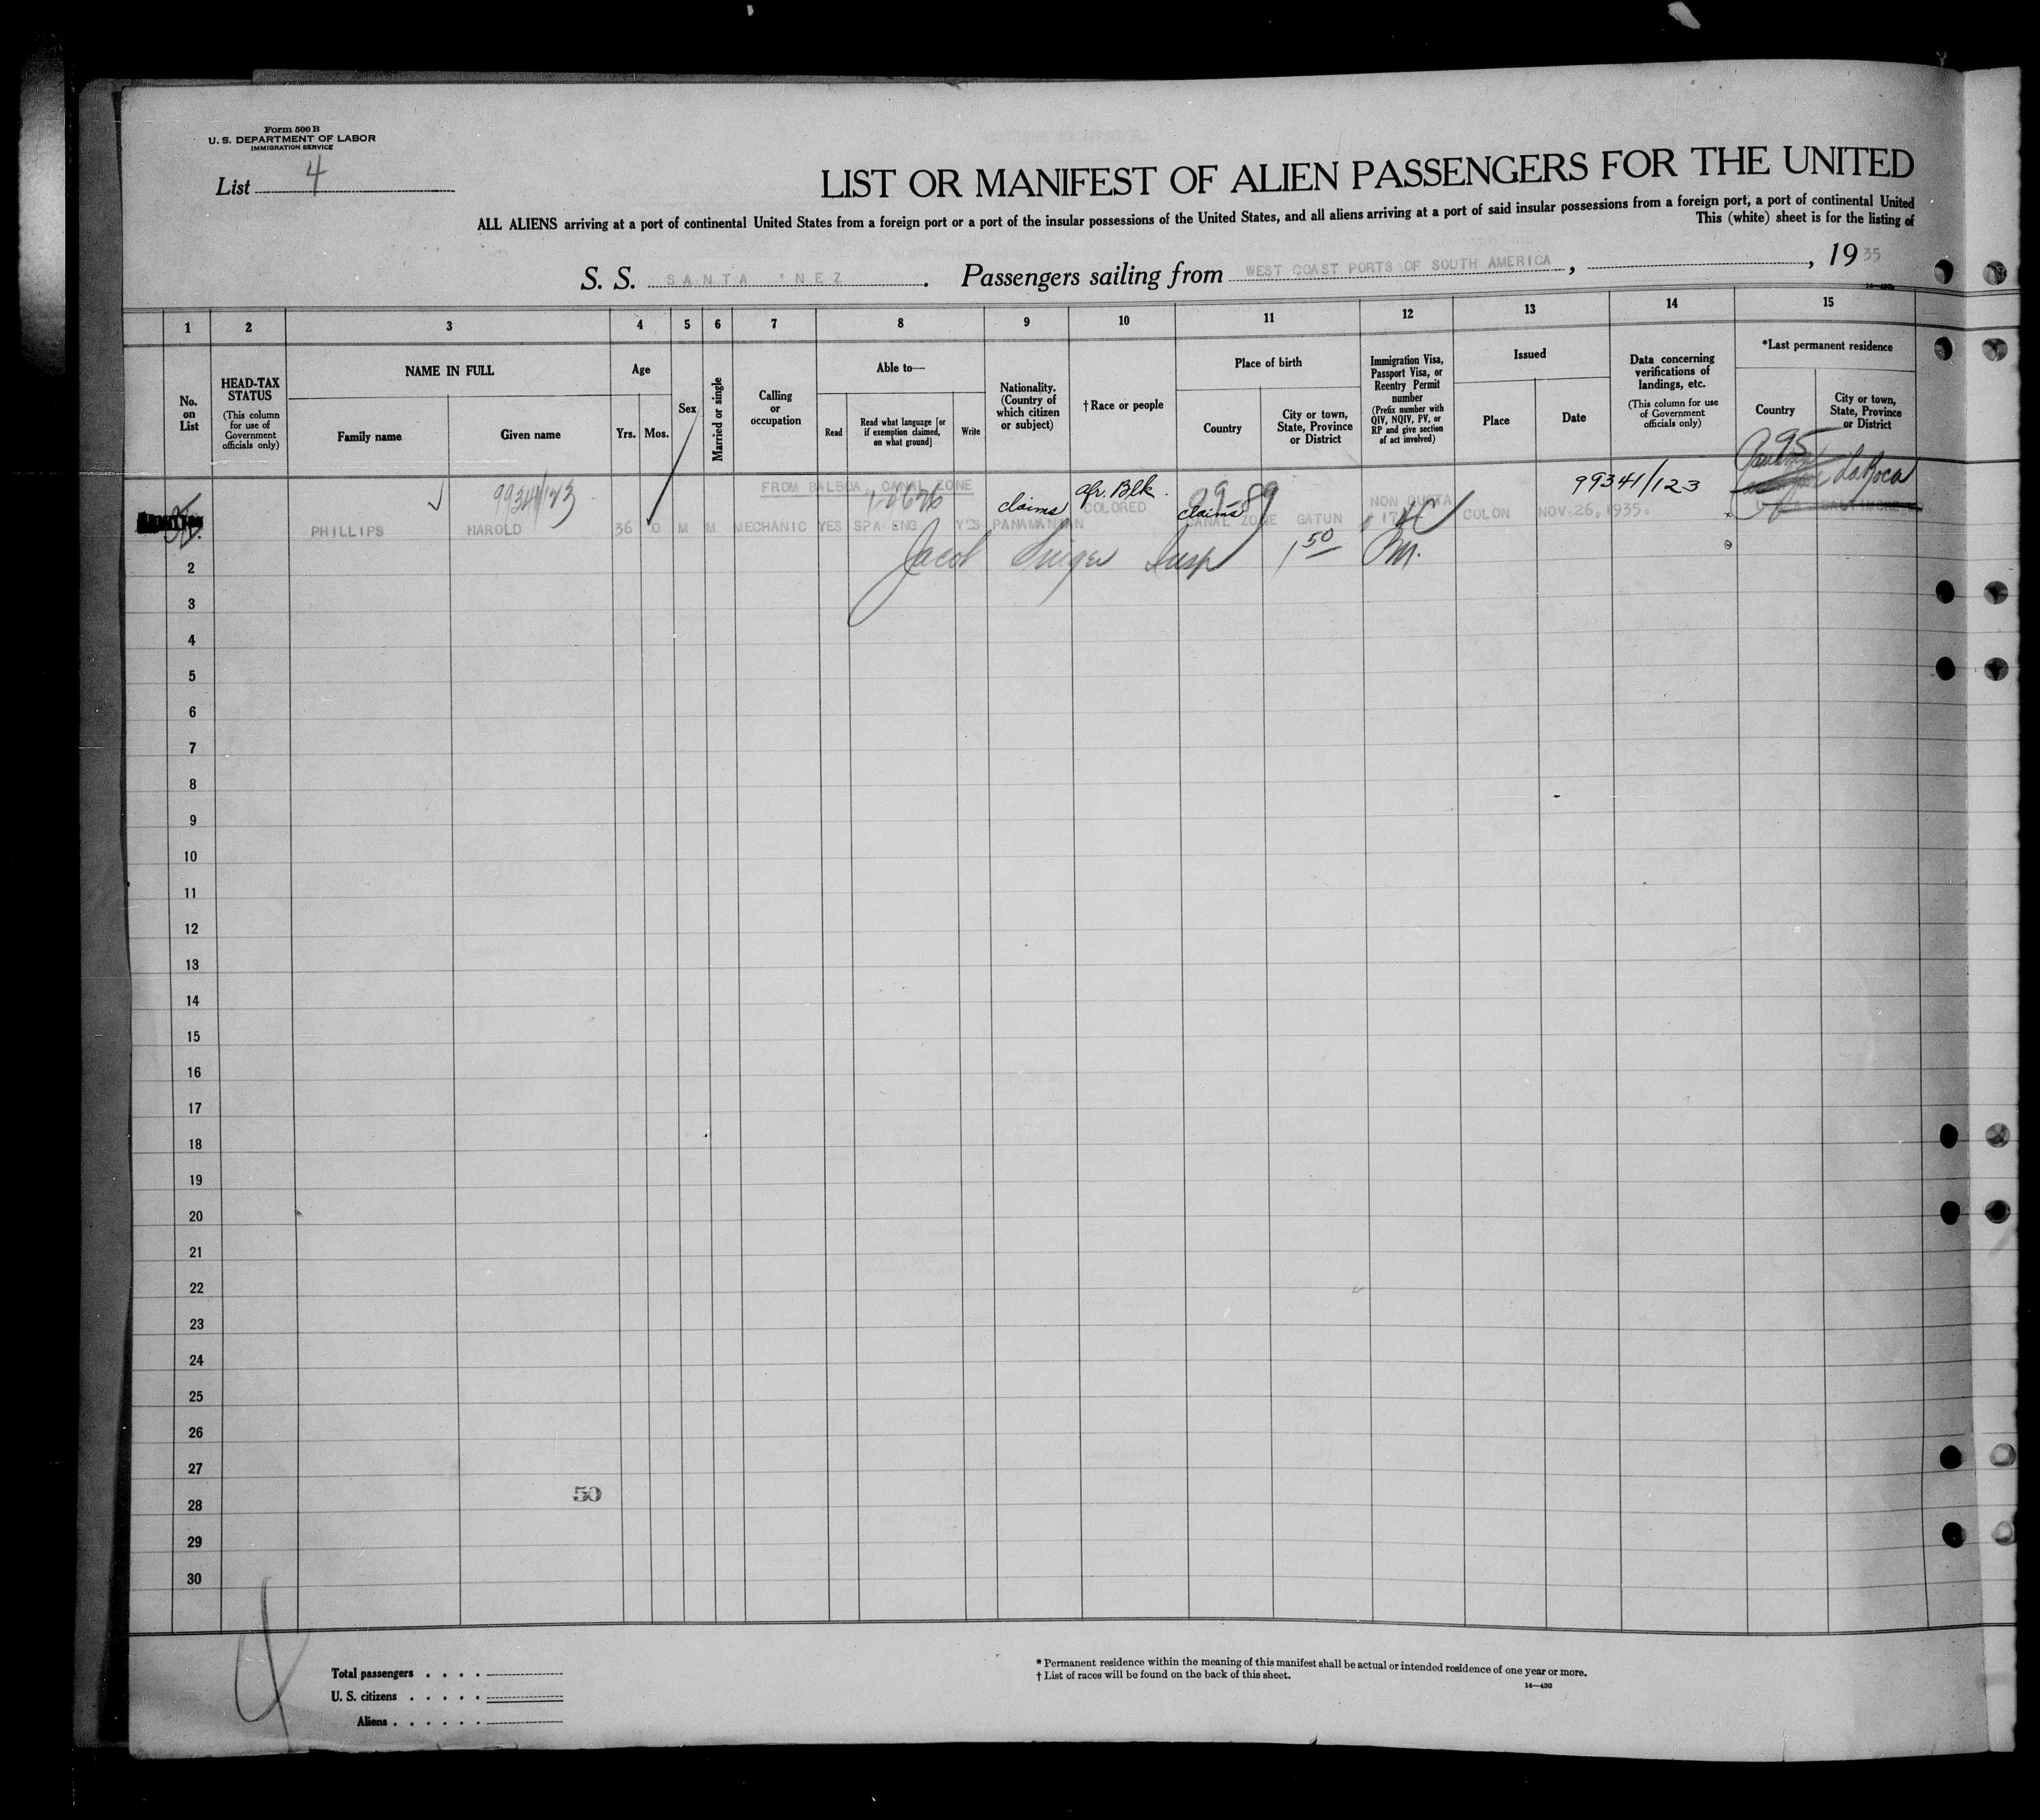 Form 500 B
U. S. DEPARTMENT OF LABOR
IMMIGRATION SERVICE
List 4
LIST OR MANIFEST OF ALIEN PASSENGERS FOR THE UNITED
ALL ALIENS arriving at a port of continental United States from a foreign port or a port of the insular possessions of the United States, and all aliens arriving at a port of said insular possessions from a foreign port, a port of continental United
This (white) sheet is for the listing of
S. S. SANTA NEZ. Passengers sailing from WEST COAST PORTS OF SOUTH AMERICA, , 1935
14—430
1 2 3 4 5 6 7 8 9 10 11 12 13 14 15
No. on List
HEAD-TAX STATUS
(This column for use of Government officials only)
NAME IN FULL
Family name Given name
Age
Yrs. Mos.
Sex
Married or single
Calling or occupation
Able to—
Read
Read what language [or if exemption claimed, on what ground]
Write
Nationality. (Country of which citizen or subject)
†Race or people
Place of birth
Country
City or town, State, Province or District
Immigration Visa, Passport Visa, or Reentry Permit number
(Prefix number with QIV, NQIV, PV, or RP and give section of act involved)
Issued
Place Date
Data concerning verifications of landings, etc.
(This column for use of Government officials only)
*Last permanent residence
Country
City or town, State, Province or District
95
99341/123 FROM BALBOA, CANAL ZONE claims afr. Blk. COLORED 29-89 claims NON QUOTA 4C 99341/123 La Boca
PHILLIPS HAROLD 36 0 M M MECHANIC YES SPA ENG YES PANAMANIAN CANAL ZONE GATUN COLON NOV.26,1935. BALTIMORE
Jacob Insp 1 50
2
3
4
5
6
7
8
9
10
11
12
13
14
15
16
17
18
19
20
21
22
23
24
25
26
27
50
28
29
30
4
Total passengers . . . .
U. S. citizens . . . . .
Aliens . . . . . .
* Permanent residence within the meaning of this manifest shall be actual or intended residence of one year or more.
† List of races will be found on the back of this sheet.
14—430